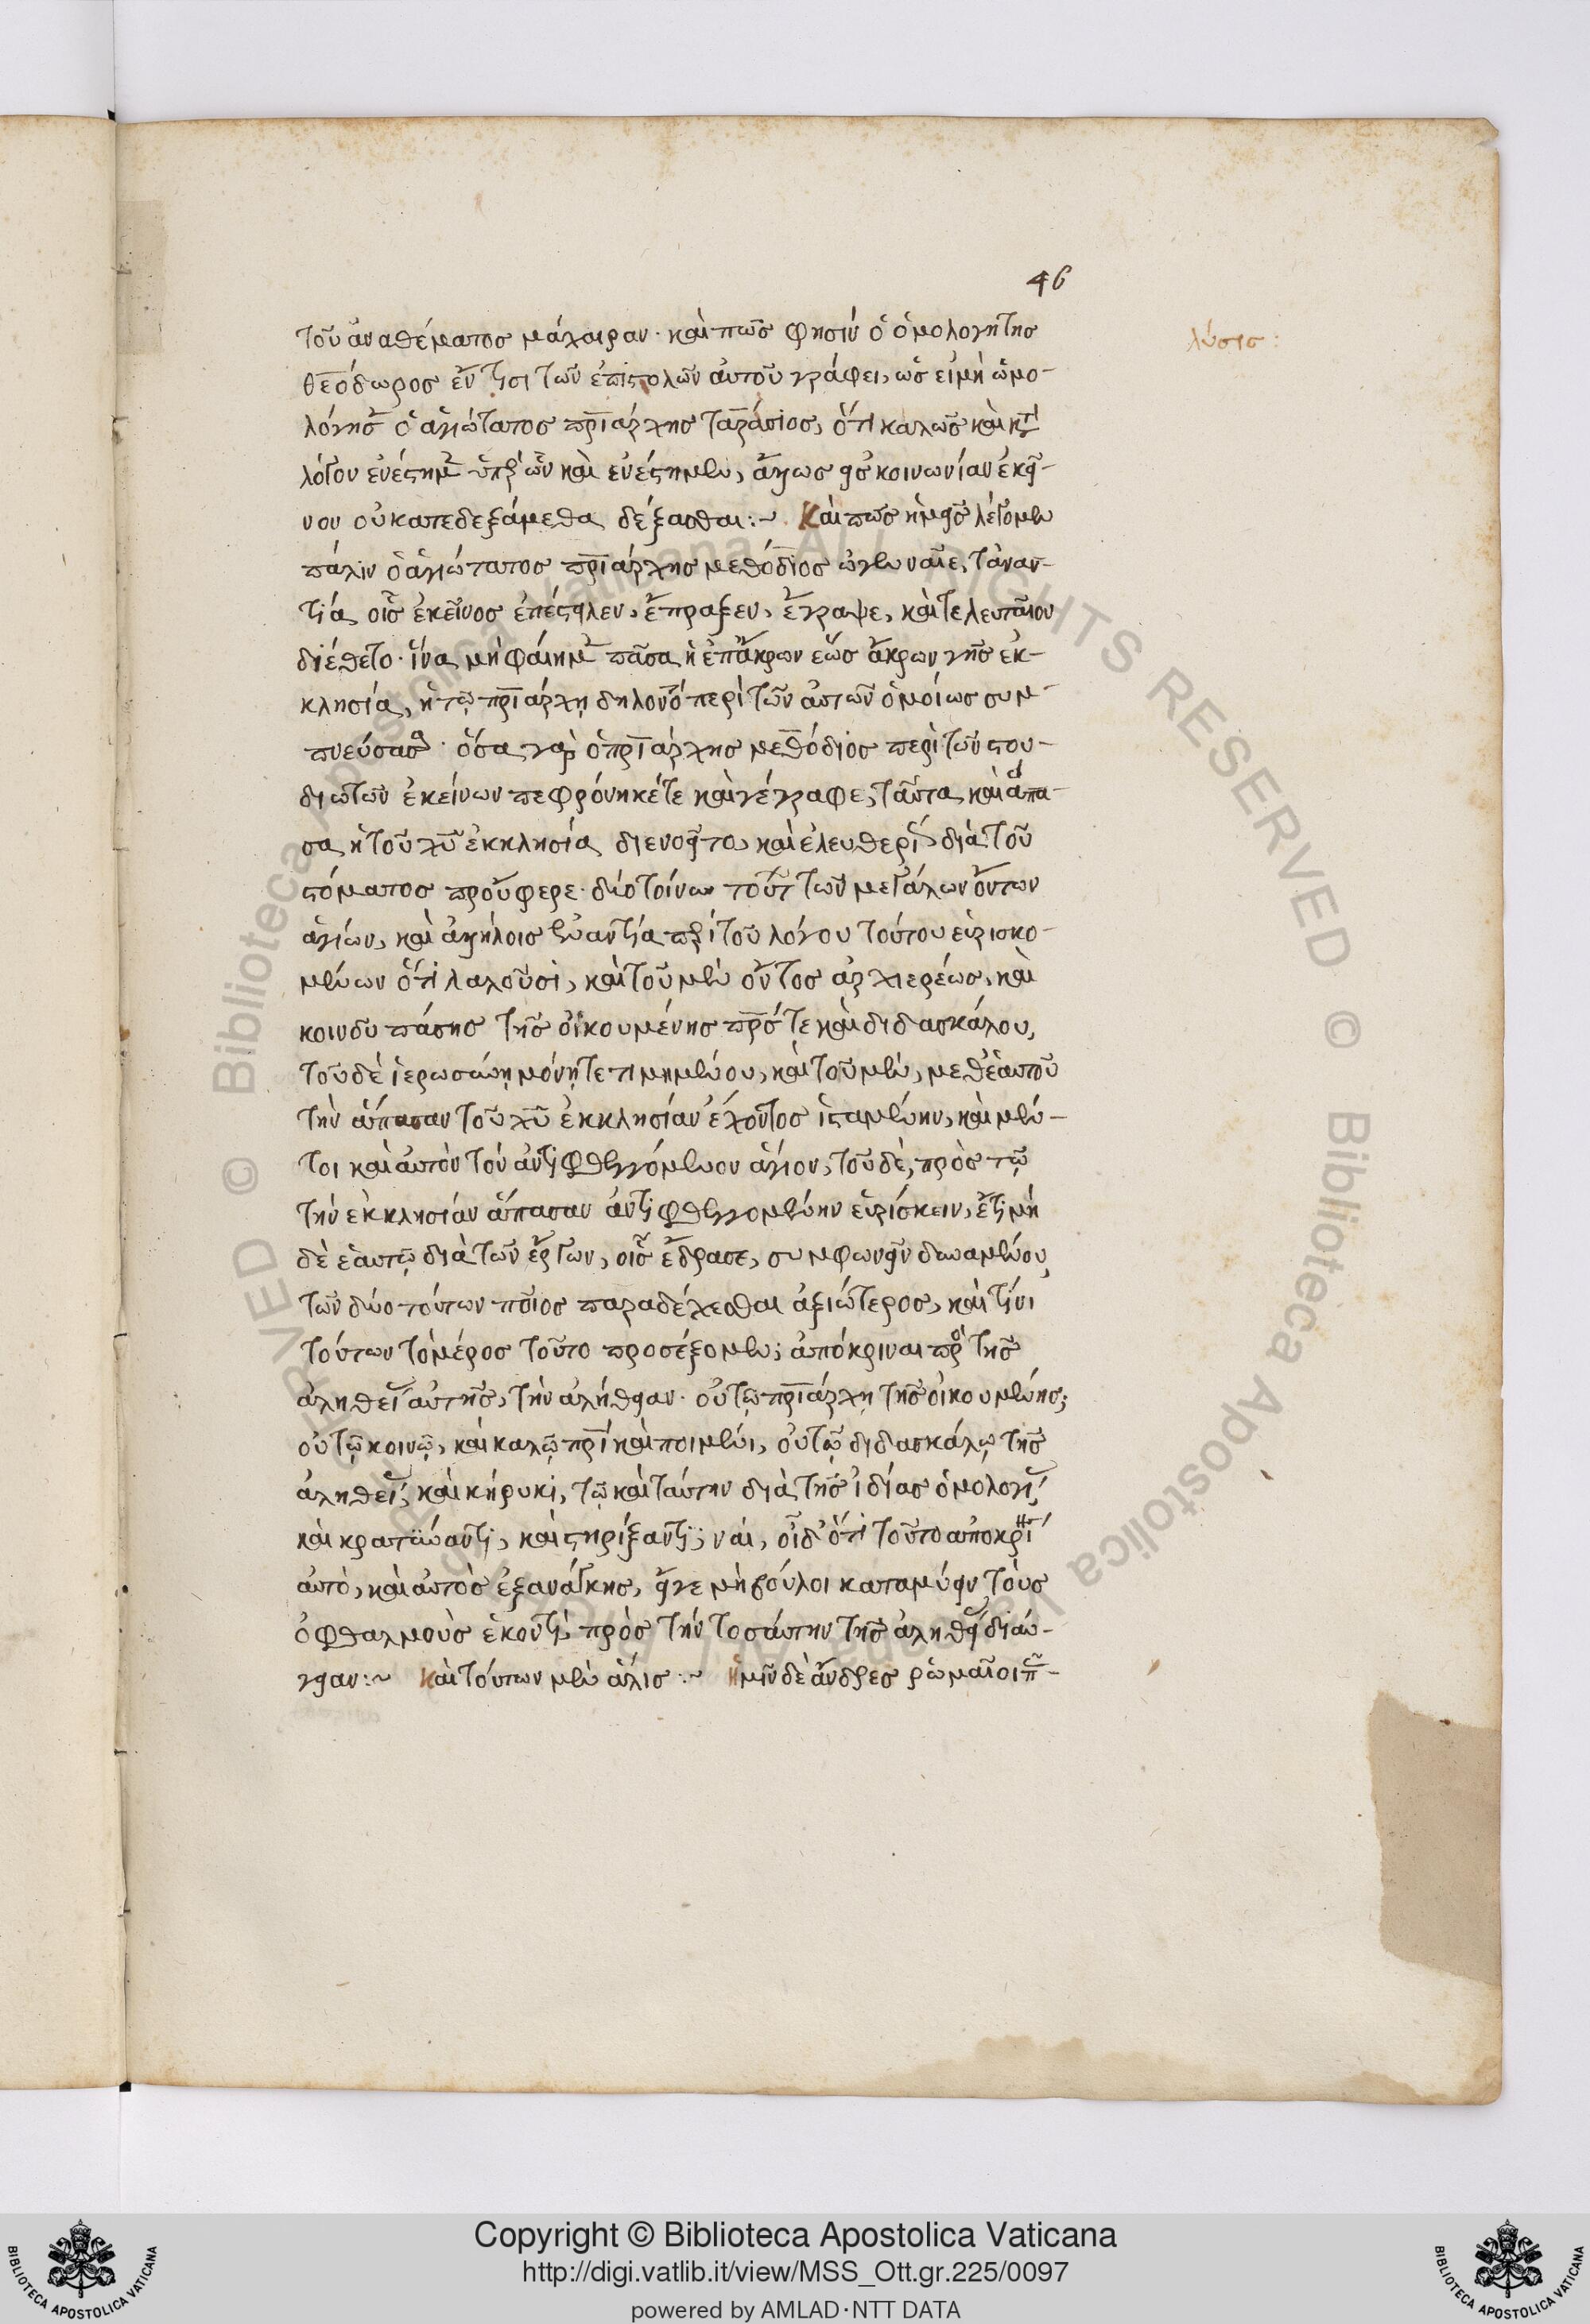 46
τοῦ ἀναθέματος μάχαιραν· καὶ πῶς φησὶν ὁ ὁμολογητὴς
λύσις:
θεόδωρος ἔν τισι τῶν ἐπιστολῶν αὐτοῦ γράφει, ὡς εἰ μὴ ὡμο-
λόγησ ὁ ἁγιώτατος πρῖάρχης ταράσιος, ὅτι καλῶς καὶ κτ
λόγον ἐνέστημ ὑπὲρ ὧν καὶ ἐνέστημεν, ἄλλως εἰς κοινωνίαν ἐκεί-
νου οὐκ ἀπεδεξάμεθα δέξασθαι:~ Καὶ πῶς ἡμεῖς λέγομεν
πάλιν ὁ ἁγιώτατος πρῖάρχης μεθόδιος τἀναν-
τία οἷς ἐκεῖνος ἐπέστειλεν, ἔπραξεν, ἔγραψε, καὶ τελευταῖον
διέθετο· ἵνα μὴ φαίημ πᾶσα ἡ ἐπ' ἄκρων ἕως ἄκρων γῆς ἐκ-
κλησία, ἡ τῷ πρῖάρχῃ δηλονό περὶ τῶν αὐτῶν ὁμοίως συμ-
πνεύσασα· ὅσα γὰρ ὁ πρῖάρχης μεθόδιος περὶ τῶν στου-
διωτῶν ἐκείνων πεφρόνηκέ τε καὶ γέγραφε, ταῦτα καὶ ἅπα-
σα ἡ τοῦ χῦ ἐκκλησία διενοεῖτο, καὶ ἐλευθερί διὰ τοῦ
στόματος προὔφερε· δύο τοίνυν τούτ τῶν μεγάλων ὄντων
ἁγίων, καὶ ἀλλήλοις ἐναντία περὶ τοῦ λόγου τούτου εὑρισκο-
μένων ὅτι λαλοῦσι, καὶ τοῦ μὲν ὄντος ἀρχιερέως, καὶ
κοινοῦ πάσης τῆς οἰκουμένης πρ̅ός τε καὶ διδασκάλου,
τοῦ δὲ ἱερωσύνῃ μόνῃ τετιμημένου, καὶ τοῦ μὲν, μεθ' ἑαυτοῦ
τὴν ἅπασαν τοῦ χῦ ἐκκλησίαν ἔχοντος ἱσταμένην, καὶ μέν-
τοι καὶ αὐτὸν τὸν ἀντιφθεγγόμενον ἅγιον, τοῦ δὲ, πρὸς τῷ
τὴν ἐκκλησίαν ἅπασαν ἀντιφθεγγομένην εὑρίσκειν, ἔτι μη
δὲ ἑαυτῷ διὰ τῶν ἔργων, οἷς ἔδρασε, συμφωνεῖν δυναμένου,
τῶν δύο τούτων ποῖος παραδέχεσθαι ἀξιώτερος, καὶ τίνι
τούτων τὸ μέρος τοῦτο προσέξομεν; ἀπόκριναι πρὸ τῆς
ἀληθεί αὐτῆς, τὴν ἀλήθειαν· οὐ τῷ πρῖάρχῃ τῆς οἰκουμένης;
οὐ τῷ κοινῷ, καὶ καλῷ πρῖ καὶ ποιμένι, οὐ τῷ διδασκάλῳ τῆς
ἀληθεί, καὶ κήρυκι, τῷ καὶ ταύτην διὰ τῆς ἰδίας ὁμολογί
καὶ κρατύναντι, καὶ στηρίξαντι; ναὶ, οἶδ' ὅτι τοῦτο ἀποκρι
αὐτὸ, καὶ αὐτὸς ἐξ ἀνάγκης, εἴγε μὴ βούλοι καταμύειν τοὺς
ὀφθαλμοὺς ἑκοντὶ πρὸς τὴν τοσαύτην τῆς ἀληθεί διαύ-
γειαν:~ Καὶ τούτων μὲν ἅλις:~ ἡμῖν δὲ ἄνδρες ῥωμαῖοι π-
Copyright © Biblioteca Apostolica Vaticana
http://digi.vatlib.it/view/MSS_Ott.gr.225/0097
powered by AMLAD·NTT DATA